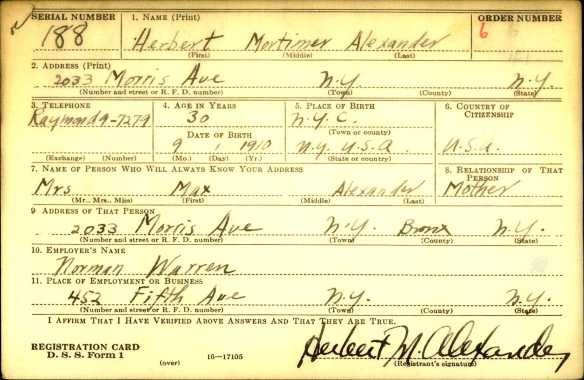 SERIAL NUMBER 1. NAME (Print) ORDER NUMBER
188 Herbert Mortimer Alexander 6
(First) (Middle) (Last)
2. ADDRESS (Print)
2033 Morris Ave N.Y. N.Y.
(Number and street or R. F. D. number) (Town) (County) (State)
3. TELEPHONE 4. AGE IN YEARS 5. PLACE OF BIRTH 6. COUNTRY OF CITIZENSHIP
Raymond 9-7279 30 N.Y.C. U.S.A.
DATE OF BIRTH (Town or county)
9 1 1910 N.Y. U.S.A.
(Exchange) (Number) (Mo.) (Day) (Yr.) (State or country)
7. NAME OF PERSON WHO WILL ALWAYS KNOW YOUR ADDRESS 8. RELATIONSHIP OF THAT PERSON
Mrs Max Alexander Mother
(Mr., Mrs., Miss) (First) (Last)
9. ADDRESS OF THAT PERSON
2033 Morris Ave N.Y. Bronx N.Y.
(Number and street or R. F. D. number) (Town) (County) (State)
10. EMPLOYER'S NAME
Norman Warren
11. PLACE OF EMPLOYMENT OR BUSINESS
452 Fifth Ave N.Y. N.Y.
(Number and street or R. F. D. number) (Town) (County) (State)
I AFFIRM THAT I HAVE VERIFIED ABOVE ANSWERS AND THAT THEY ARE TRUE.
REGISTRATION CARD
D. S. S. Form 1 (over) 16—17105 Herbert M. Alexander
(Registrant's signature)